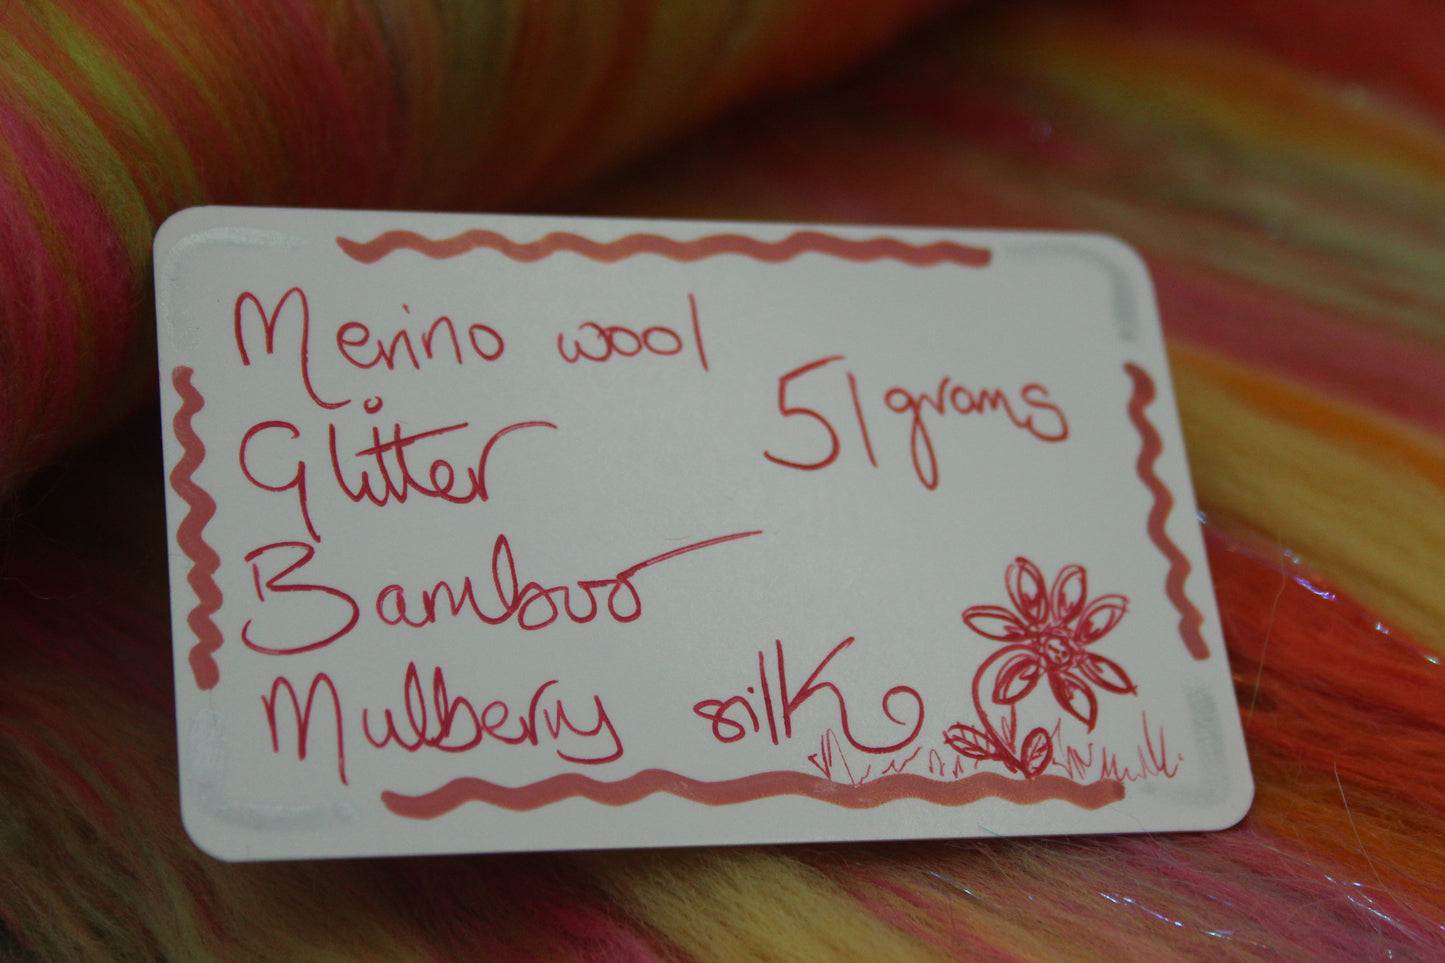 Merino wool
51 grams
Glitter
Bamboo
Mulberry silk